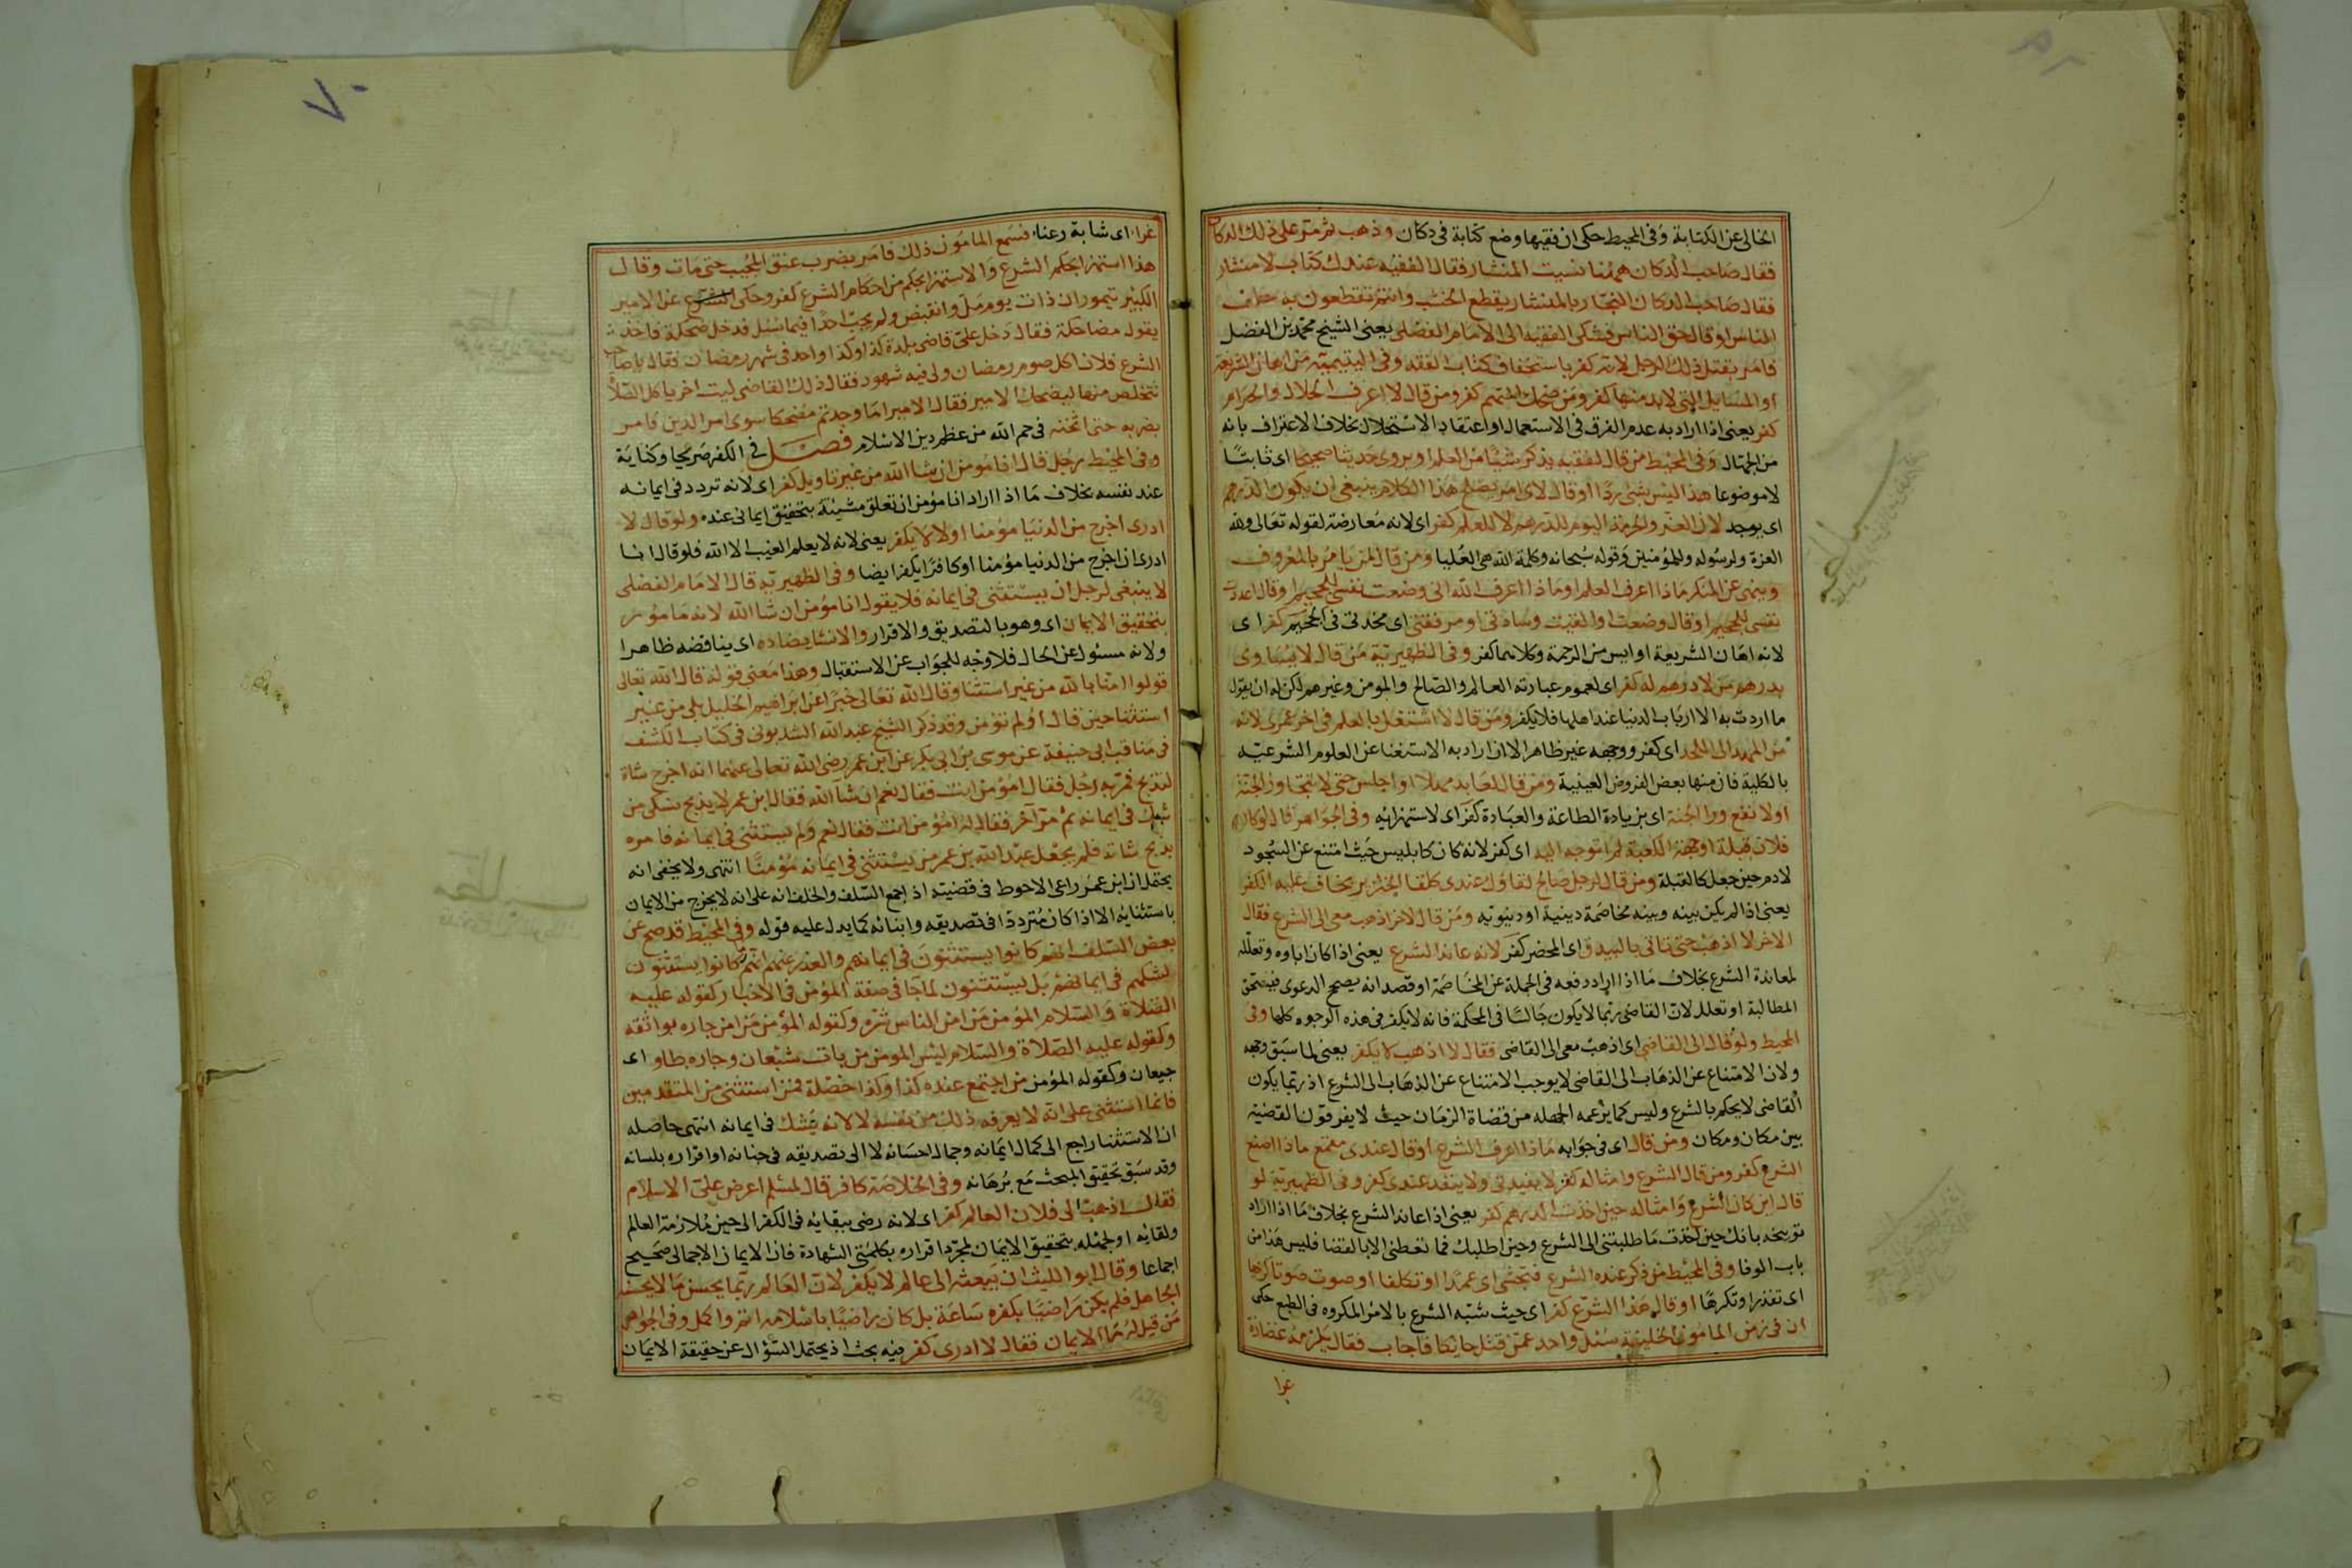 الخالى عن الكتابة وفى المحيط حكى ان فقيها وضع كتابه فى دكان وذهب ثم مر على ذلك الدكان
فقال صاحب الدكان ههنا نسيت المنشار فقال الفقيه عندك كتاب لا منشار
فقال صاحب الدكان النجار بالمنشار يقطع الخشب وانتم تقطعون به حلق
الناس او قال حق الناس فشكى الفقيه الى الامام الفضلى يعنى الشيخ محمد بن الفضل
فامر بقتل ذلك الرجل لانه كفر باستخفاف كتاب الفقه وفى اليتيمية من اهان الشريعة
او المسايل التى لا بد منها كفر ومن ضحك المتيمم كفر ومن قال لا اعرف الحلال والحرام
كفر يعنى اذا اراد به عدم الفرق فى الاستعمال او اعتقاد الاستحلال بخلاف الاعتراف بانه
من الجهال وفى المحيط من قال لفقيه يذكر شيئا من العلم او يروى حديثا صحيحا اى ثابتا
لا موضوعا هذا ليس بشئ ردا او قال لاى امر يصلح هذا الكلام ينبغى ان يكون الدرهم
اى يوجد لان العز والحرمة اليوم للدرهم لا للعلم كفر اى لانه معارضة لقوله تعالى ولله
العزة ولرسوله وللمؤمنين وقوله سبحانه وكلمة الله هى العليا ومن قال لمن يامر بالمعروف
وينهى عن المنكر ماذا اعرف العلم او ماذا اعرف الله انى وضعت نفسى للجحيم او قال اعددت
نفسى للجحيم او قال وضعت او القيت وسادتى او مرفقتى اى مخدتى فى الجحيم كفر اى
لانه اهان الشريعة او ايس من الرحمة وكلاهما كفر وفى الظهيرية من قال لا يساوى
بدرهم من لا درهم له كفر اى لعموم عبارته العالم والصالح والمومن وغيرهم لكن له ان يقول
ما اردت به الا ارباب الدنيا عند اهلها فلا يكفر ومن قال لا اشتغل بالعلم فى اخر عمرى لانه
من المهد الى اللحد اى كفر ووجهه غير ظاهر الا ان اراد به الاستغنا عن العلوم الشرعية
بالكلية فان منها بعض الفروض العينية ومن قال لعابد مهلا او اجلس حتى لا تتجاوز الجنة
او لا تقع ورا الجنة اى بزيادة الطاعة والعبادة كفر اى لاستهزايه وفى الجواهر قال لو كان
فلان قبلة او جهة الكعبة لم اتوجه اليه اى كفر لانه كان كابليس حيث امتنع عن السجود
لادم حين جعل كالقبلة ومن قال لرجل صالح لقاؤك عندى كلقا الخنزير يخاف عليه الكفر
يعنى اذا لم يكن بينه وبينه مخاصمة دينية او دنيوية ومن قال لاخر اذهب معى الى الشرع فقال
الاخر لا اذهب حتى تاتى بالبيدق اى المحضر كفر لانه عاند الشرع يعنى اذا كان اباوه وتعلله
لمعاندة الشرع بخلاف ما اذا اراد دفعه فى الجملة عن المخاصمة او قصد انه يصحح الدعوى فيستحق
المطالبة او تعلل لان القاضى ربما لا يكون جالسا فى المحكمة فانه لا يكفر فى هذه الوجوه كلها وفى
المحيط ولو قال الى القاضى اى اذهب معى الى القاضى فقال لا اذهب لا يكفر يعنى لما سبق وجهه
ولان الامتناع عن الذهاب الى القاضى لا يوجب الامتناع عن الذهاب الى الشرع اذ ربما يكون
القاضى لا يحكم بالشرع وليس كما يزعمه الجهله من قضاة الزمان حيث لا يفرقون القضية
بين مكان ومكان ومن قال اى فى جوابه ماذا اعرف الشرع او قال عندى مقمع ماذا اصنع
الشرع كفر ومن قال الشرع وامثاله كفر لا يفيدنى ولا ينفذ عندى كفر وفى الظهيرية لو
قال اين كان الشرع وامثاله حين اخذت الدرهم كفر يعنى اذا عاند الشرع بخلاف ما اذا اراد
توبيخه بانك حين اخذت ما طلبتنى الى الشرع وحين اطلبك فما تعطنى الا بالقضا فليس هذا من
باب الوفا وفى المحيط من ذكر عنده الشرع فتجشى اى عمدا او تكلفا او صوت صوتا كريها
اى تقذرا وتكرها او قال هذا الشرع كفر اى حيث شبه الشرع بالامر المكروه فى الطبع حكى
ان فى زمن المامون الخليفة سئل واحد عمن قتل حايكا فاجاب فقال يلزمه غضارة
غرا
٧٠
غرا اى شابة رعنا فسمع المامون ذلك فامر بضرب عنق المجيب حتى مات وقال
هذا استهزا بحكم الشرع والاستهزا بحكم من احكام الشرع كفر وحكى عن الامير
الكبير تيمور ان ذات يوم مل وانقبض ولم يجب احدا فيما سئل فدخل ضحكة فاخذ
يقول مضاحكة فقال دخل على قاضى بلدة كذا وكذا واحد فى شهر رمضان فقال يا حاكم
الشرع فلان اكل صوم رمضان ولى فيه شهود فقال ذلك القاضى ليت اخر ياكل الصلاة
نتخلص منها ليضحك الامير فقال الامير اما وجدتم مضحكا سوى امر الدين فامر
بضربه حتى اثخنه فرحم الله من عظم دين الاسلام فصل فى الكفر صريحا وكناية
وفى المحيط رجل قال انا مؤمن ان شا الله من غير تاويل كفر اى لانه تردد فى ايمانه
عند نفسه بخلاف ما اذا اراد انا مؤمن ان تعلق مشيئة بتحقيق ايمانى عنده ولو قال لا
ادرى اخرج من الدنيا مؤمنا او لا لا يكفر يعنى لانه لا يعلم الغيب الا الله فلو قال انا
ادرى ان اخرج من الدنيا مؤمنا او كافرا يكفر ايضا وفى الظهيرية قال الامام الفضلى
لا ينبغى لرجل ان يستثنى فى ايمانه فلا يقول انا مؤمن ان شا الله لانه مامور
بتحقيق الايمان اى وهو بالتصديق والاقرار والاستثنا يضاده اى يناقضه ظاهرا
ولانه مسئول عن الحال فلا وجه للجواب عن الاستقبال وهذا معنى قوله قال الله تعالى
قولوا امنا بالله من غير استثنا وقال الله تعالى خبرا عن ابراهيم الخليل بلى من غير
استثنا حين قال اولم تؤمن وقد ذكر الشيخ عبد الله السذبونى فى كتاب الكشف
فى مناقب ابى حنيفة عن موسى بن ابى بكر عن ابن عمر رضى الله تعالى عنهما انه اخرج شاة
لتذبح فمر به رجل فقال امؤمن انت فقال نعم ان شا الله فقال ابن عمر لا يذبح نسكى من
شك فى ايمانه ثم مر آخر فقال له امؤمن انت فقال نعم ولم يستثنى فى ايمانه فامره
بذبح شاته فلم يجعل عبد الله بن عمر من يستثنى فى ايمانه مؤمنا انتهى ولا يخفى انه
يحتمل ان ابن عمر راعى الاحوط فى قضيته اذ اجمع السلف والخلف انه على انه لا يخرج من الايمان
باستثنايه الا اذا كان مترددا فى تصديقه وايمانه كما يدل عليه قوله وفى المحيط قد صح عن
بعض السلف انهم كانوا يستثنون فى ايمانهم والعذر عنهم انهم كانوا يستثنون
لشكهم فى ايمانهم بل يستثنون لما جا فى صفة المؤمن فى الاخبار كقوله عليه
الصلاة والسلام المؤمن من امن الناس شره وكقوله المؤمن من امن جاره بوائقه
وكقوله عليه الصلاة والسلام ليس المومن من بات شبعان وجاره طاو اى
جيعان وكقوله المؤمن من اجتمع عنده كذا وكذا خصلة فمن استثنى من المتقدمين
فانما استثنى على انه لا يعرفه ذلك من نفسه لا لانه يشك فى ايمانه انتهى حاصله
ان الاستثنا راجع الى كمال ايمانه وجمال احسانه لا الى تصديقه فى جنانه او اقراره بلسانه
وقد سبق تحقيق المبحث مع برهانه وفى الخلاصة كافر قال لمسلم اعرض على الاسلام
فقال اذهب الى فلان العالم كفر اى لانه رضى ببقايه فى الكفر الى حين ملازمة العالم
ولقايه او لجهله بتحقيق الايمان لمجرد اقراره بكلمتى الشهادة فان الايمان الاجمالى صحيح
اجماعا وقال ابو الليث ان بعثه الى عالم لا يكفر لان العالم ربما يحسن ما لا يحسنه
الجاهل فلم يكن راضيا بكفره ساعة بل كان راضيا باسلامه اتم واكمل وفى الجواهر
من قيل له ما الايمان فقال لا ادرى كفر وفيه بحث اذ يحتمل السؤال عن حقيقة الايمان
مطلب
مطلب